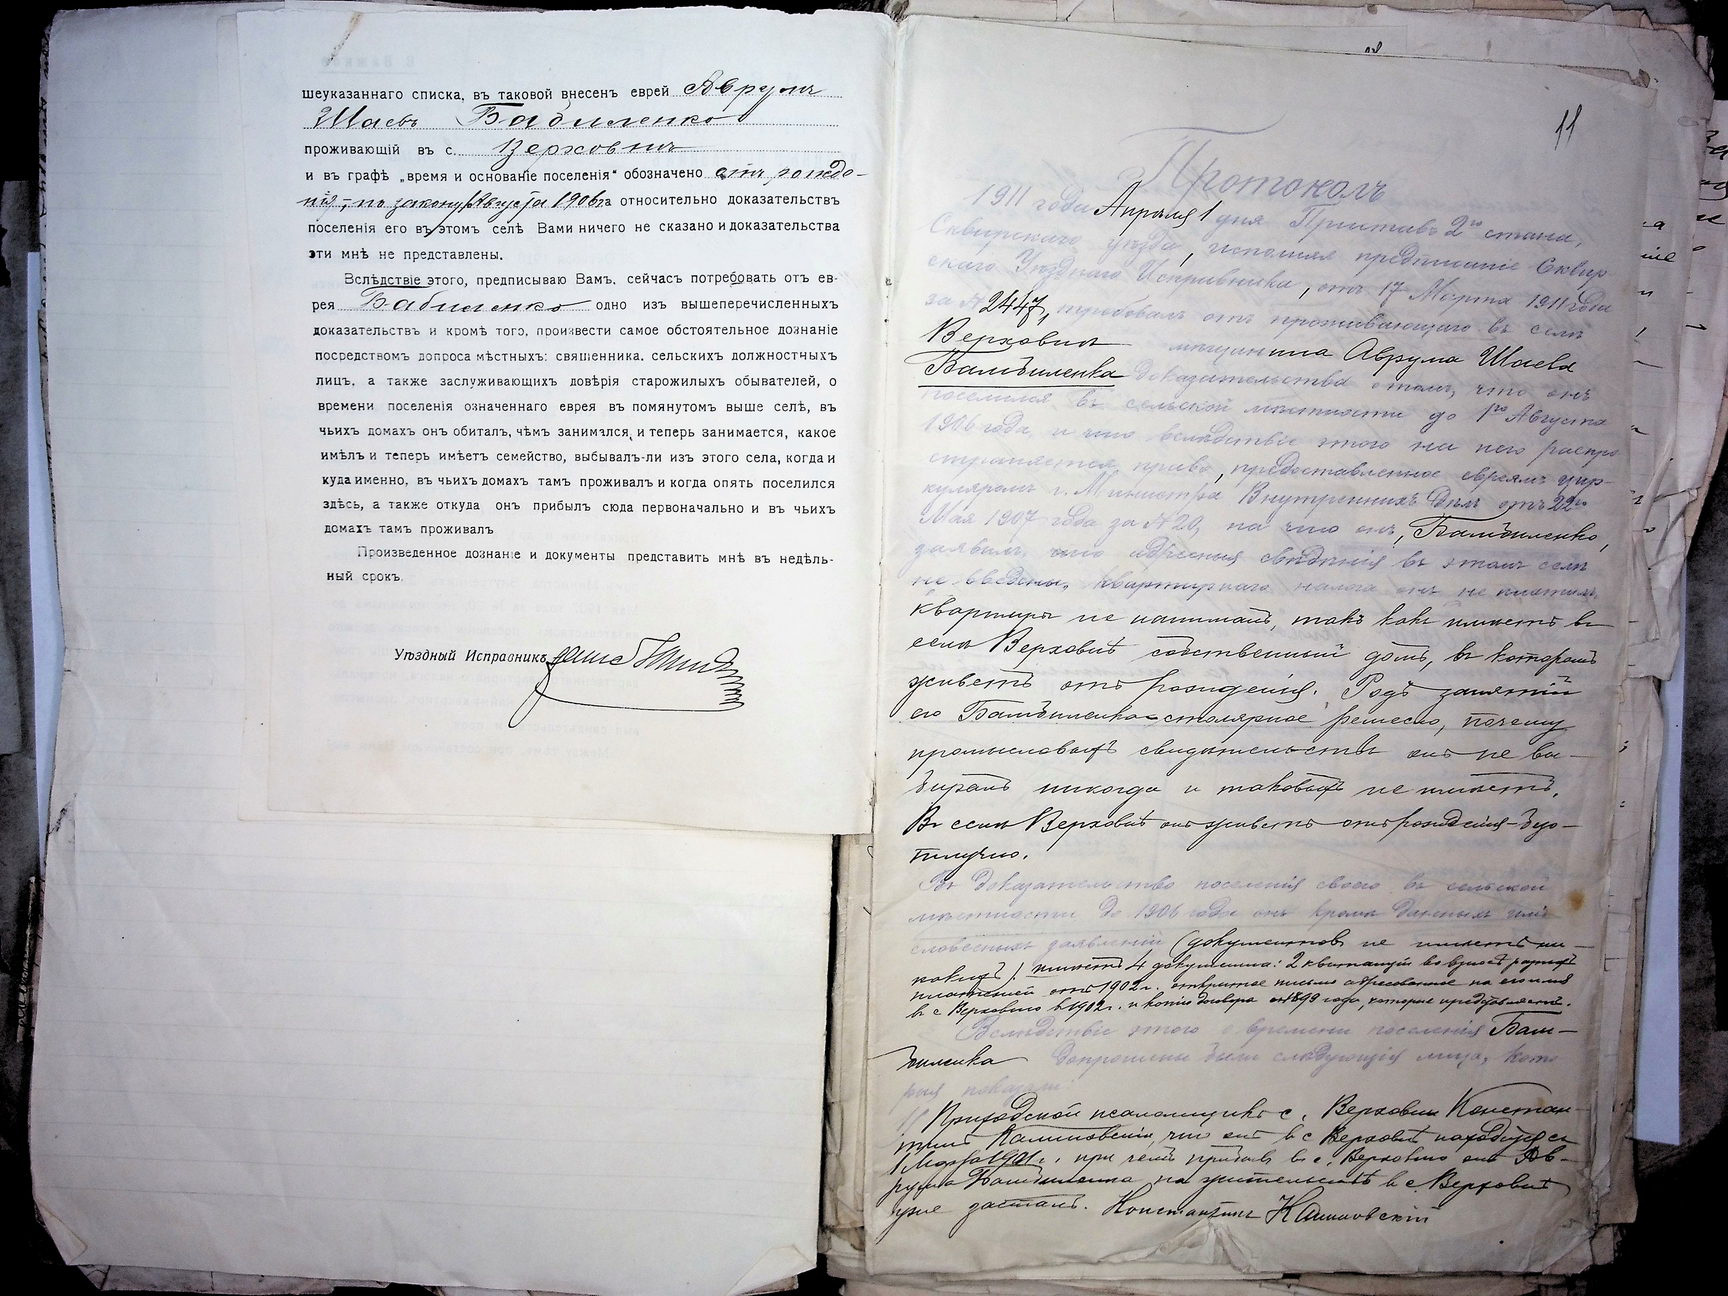 шеуказаннаго списка, въ таковой внесенъ еврей Аврумъ
Шаевъ Бабиленко
проживающій въ с. Верховнѣ
и въ графѣ „время и основаніе поселенія“ обозначено отъ рожде-
нія, по закону 1 Августа 1906 г. а относительно доказательствъ
поселенія его въ этомъ селѣ Вами ничего не сказано и доказательства
эти мнѣ не представлены.
Вслѣдствіе этого, предписываю Вамъ, сейчасъ потребовать отъ ев-
рея Бабиленко одно изъ вышеперечисленныхъ
доказательствъ и кромѣ того, произвести самое обстоятельное дознаніе
посредствомъ допроса мѣстныхъ: священника. сельскихъ должностныхъ
лицъ, а также заслуживающихъ довѣрія старожилыхъ обывателей, о
времени поселенія означеннаго еврея въ помянутомъ выше селѣ, въ
чьихъ домахъ онъ обиталъ, чѣмъ занимался, и теперь занимается, какое
имѣлъ и теперь имѣетъ семейство, выбывалъ-ли изъ этого села, когда и
куда именно, въ чьихъ домахъ тамъ проживалъ и когда опять поселился
здѣсь, а также откуда онъ прибылъ сюда первоначально и въ чьихъ
домахъ тамъ проживалъ
Произведенное дознаніе и документы представить мнѣ въ недѣль-
ный срокъ.
Уѣздный Исправникъ
11
Протоколъ
1911 года Апрѣля 1 дня Приставъ 2го стана,
Сквирскаго уѣзда, исполняя предписаніе Сквир-
скаго Уѣзднаго Исправника, отъ 17 Марта 1911 года
за № 2447, требовалъ отъ проживающаго въ селѣ
Верховнѣ мѣщанина Аврума Шаева
Бамбиленка доказательства о томъ, что онъ
поселился въ сельской мѣстности до 1го Августа
1906 года и что вслѣдствіе этого на него распро
страняется право, предоставленное евреямъ цир-
куляромъ г. Министра Внутреннихъ Дѣлъ отъ 22го
Мая 1907 года за № 20, на что онъ, Бамбиленко,
заявилъ, что адресныя свѣдѣнія въ этомъ селѣ
не введены, квартирнаго налога онъ не платилъ,
квартиры не нанималъ, такъ какъ имѣетъ въ
селѣ Верховнѣ собственный домъ, въ которомъ
живетъ отъ рожденія. Родъ занятій
его Бамбиленка столярное ремесло, почему
промысловыхъ свидѣтельствъ онъ не вы-
биралъ никогда и таковыхъ не имѣетъ.
Въ селѣ Верховнѣ онъ живетъ отъ рожденія безо-
тлучно.
Въ доказательство поселенія своего въ сельской
мѣстности до 1906 года онъ кромѣ данныхъ имъ
словесныхъ заявленій (документовъ не имѣетъ ни-
какихъ) имѣетъ 4 документа: 2 квитанціи во взносѣ разныхъ
платежей отъ 1902 г. открытое письмо адресованное на его имя
въ с Верховню въ 1902 г. и копію договора отъ 1899 года, которые представляетъ.
Вслѣдствіе этого о времени поселенія Бам-
биленка допрошены были слѣдующія лица, кото
рыя показали:
1/ Приходской псаломщикъ с. Верховни Констан-
тинъ Калиновскій, что онъ въ с Верховнѣ находится съ
1 Марта 1901 г. при чемъ прибывъ въ с. Верховню онъ Ав-
рума Бамбиленка на жительствѣ въ с Верховнѣ
уже засталъ. Константинъ Калиновскій